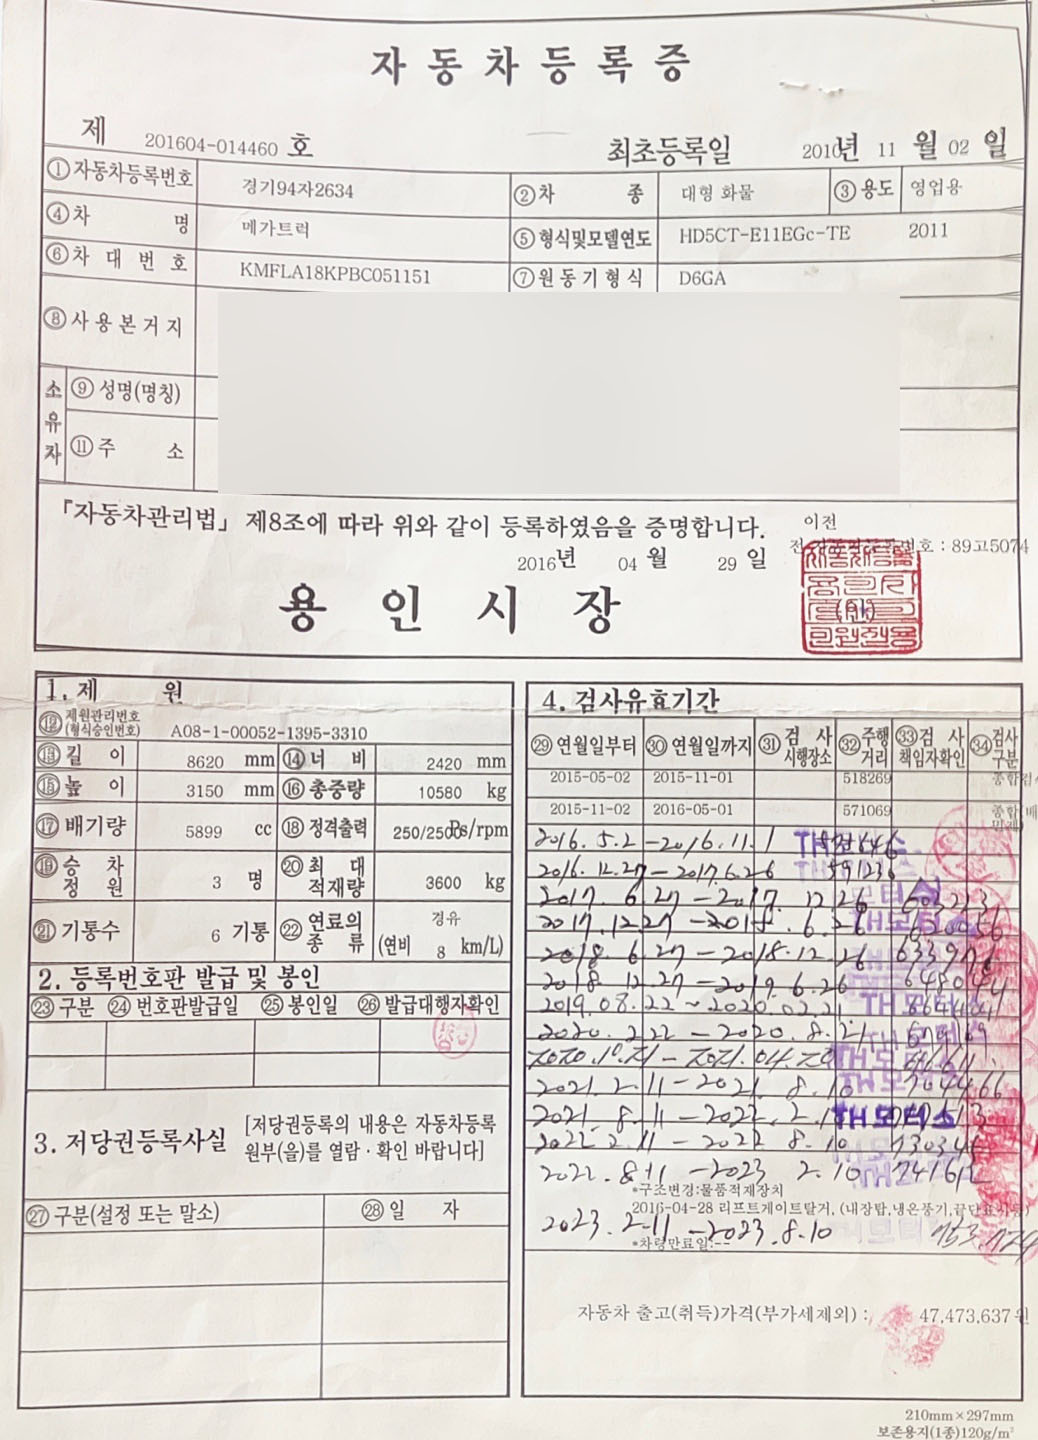 자동차등록증
제 201604-014460 호
최초등록일 2010년 11 월 02 일
①자동차등록번호 경기94자2634 ②차 종 대형 화물 ③용도 영업용
④차 명 메가트럭 ⑤형식및모델연도 HD5CT-E11EGc-TE 2011
⑥차대번호 KMFLA18KPBC051151 ⑦원동기형식 D6GA
⑧사용본거지
소유자
⑨성명(명칭)
⑪주 소
『자동차관리법』 제8조에 따라 위와 같이 등록하였음을 증명합니다.
이전
번호 : 89고5074
2016년 04 월 29 일
용인시장
(인)
1. 제 원
⑫제원관리번호
(형식승인번호) A08-1-00052-1395-3310
⑬길 이 8620 mm ⑭너 비 2420 mm
⑮높 이 3150 mm ⑯총중량 10580 kg
⑰배기량 5899 cc ⑱정격출력 250/2500Ps/rpm
⑲승차정원 3 명 ⑳최대적재량 3600 kg
㉑기통수 6 기통 ㉒연료의종류 경유
(연비 8 km/L)
2. 등록번호판 발급 및 봉인
㉓구분 ㉔번호판발급일 ㉕봉인일 ㉖발급대행자확인
3. 저당권등록사실 [저당권등록의 내용은 자동차등록
원부(을)를 열람·확인 바랍니다]
㉗구분(설정 또는 말소) ㉘일 자
4. 검사유효기간
㉙연월일부터 ㉚연월일까지 ㉛검사시행장소 ㉜주행거리 ㉝검사책임자확인 ㉞검사구분
2015-05-02 2015-11-01 518269
2015-11-02 2016-05-01 571069
2016.5.2-2016.11.1
2016.12.27-2017.6.26 591236
2017.6.27-2017.12.26
2017.12.27-2018.6.26
2018.6.27-2018.12.26
2018.12.27-2019.6.26
2019.08.22~2020.02.21
2020.2.22-2020.8.21
2021.2.11-2021.8.10 704466
2021.8.11-2022.2.10 TH모터스
2022.2.11-2022.8.10
2022.8.11-2023.2.10 741612
*구조변경:물품적재장치
2016-04-28 리프트게이트탈거, (내장탑,냉온풍기,끝단표시등)
2023.2.11-2023.8.10
*차령만료일:--
자동차 출고(취득)가격(부가세제외) : 47,473,637원
210mm×297mm
보존용지(1종)120g/m²